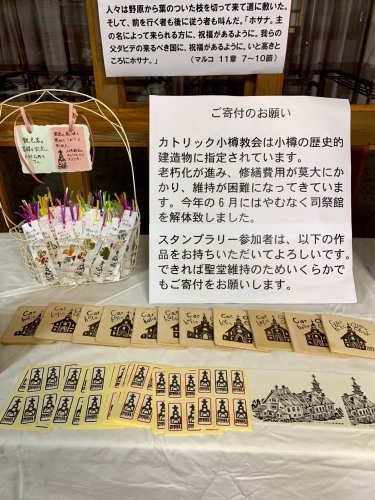 人々は野原から葉のついた枝を切って来て道に敷いた。
そして、前を行く者も後に従う者も叫んだ。「ホサナ。主
の名によって来られる方に、祝福があるように。我らの
父ダビデの来るべき国に、祝福があるように。いと高き
ところにホサナ。」
(マルコ 11章 7~10節)
ご寄付のお願い
カトリック小樽教会は小樽の歴史的
建造物に指定されています。
老朽化が進み、修繕費用が莫大に
かかり、維持が困難になってきてい
ます。今年の6月にはやむなく司祭館
を解体致しました。
スタンプラリー参加者は、以下の作
品をお持ちいただいてよろしいです。
できれば聖堂維持のためいくらかで
もご寄付をお願いします。